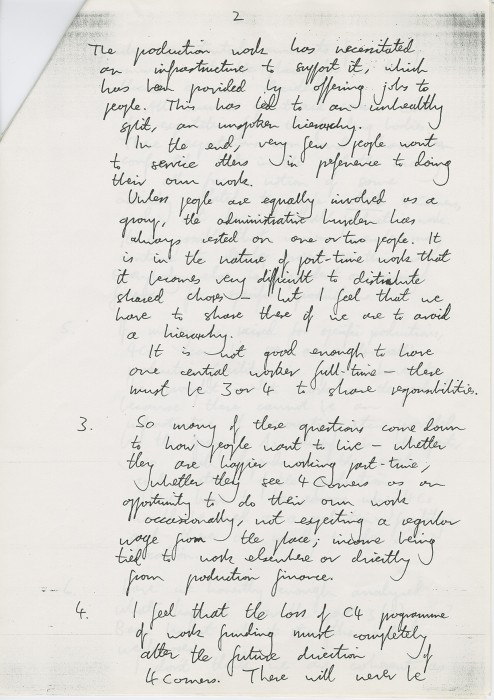 2
The production work has necessitated
an infrastructure to support it, which
has been provided by offering jobs to
people. This has led to an unhealthy
split, an unspoken hierarchy.
In the end, very few people want
to service others in preference to doing
their own work.
Unless people are equally involved as a
group, the administrative burden has
always rested on one or two people. It
is in the nature of part-time work that
it becomes very difficult to distribute
shared chores – but I feel that we
have to share these if we are to avoid
a hierarchy.
It is not good enough to have
one central worker full-time – there
must be 3 or 4 to share responsibilities.
3. So many of these questions come down
to how people want to live – whether
they are happier working part-time,
whether they see 4 Corners as an
opportunity to do their own work
occasionally, not expecting a regular
wage from the place; income being
tied to work elsewhere or directly
from production finance.
4. I feel that the loss of C4 programme
of work funding must completely
alter the future direction of
4 Corners. There will never be